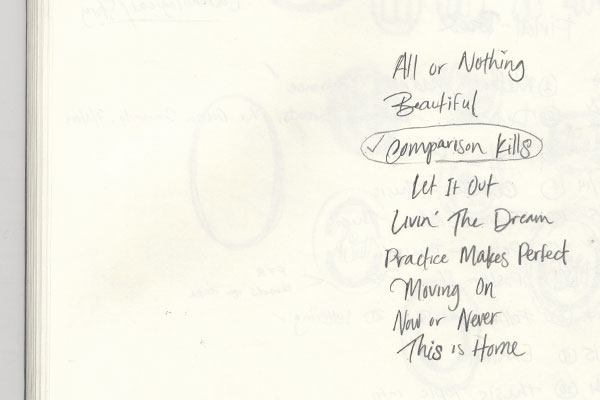 All or Nothing
Beautiful
✓ Comparison Kills
Let It Out
Livin' The Dream
Practice Makes Perfect
Moving On
Now or Never
This is Home